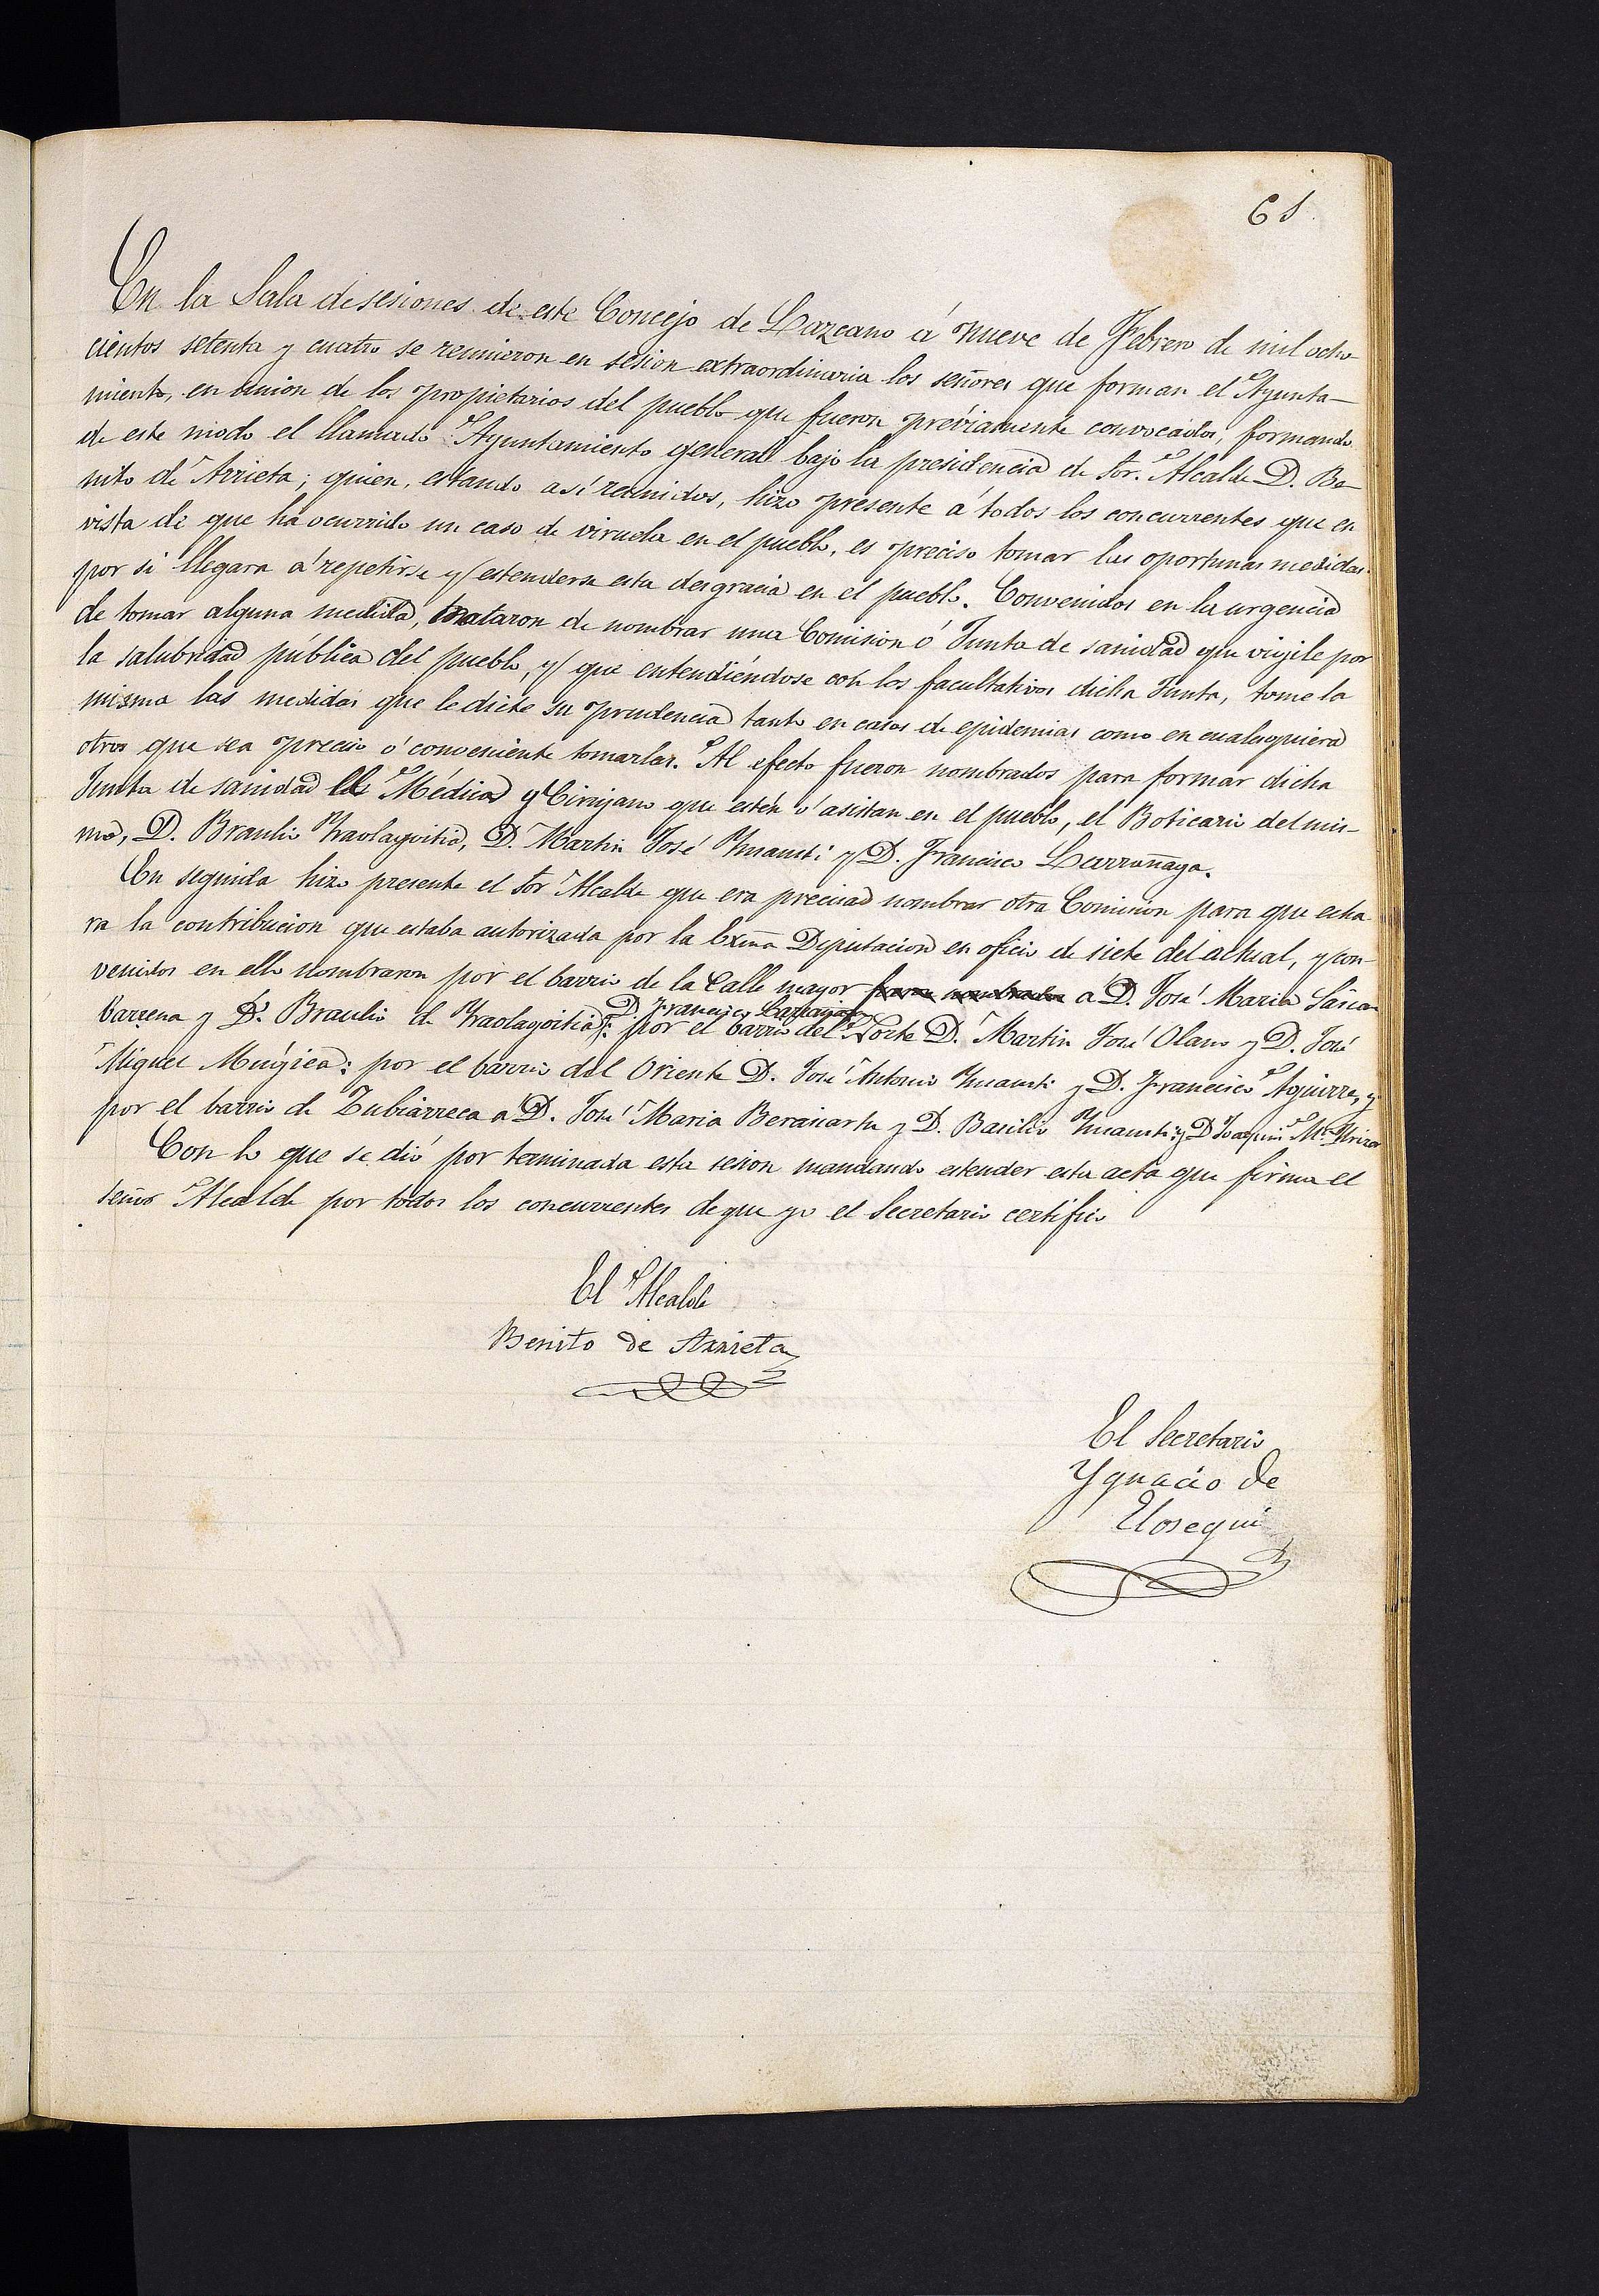 61
En la Sala de sesiones de este Concejo de Lazcano á nueve de Febrero de mil ocho-
cientos setenta y cuatro se reunieron en sesion extraordinaria los señores que forman el Ayunta-
miento, en union de los propietarios del pueblo que fueron préviamente convocados, formando
de este modo el llamado Ayuntamiento general bajo la presidencia de Sor. Alcalde D. Be-
nito de Arrieta; quien, estando asi reunidos, hizo presente á todos los concurrentes que en
vista de que ha ocurrido un caso de viruela en el pueblo, es preciso tomar las oportunas medidas
por si llegara á repetirse y estenderse esta desgracia en el pueblo. Convenidos en la urgencia
de tomar alguna medida, trataron de nombrar una Comision ó Junta de sanidad que vigile por
la salubridad pública del pueblo, y que entendiéndose con los facultativos dicha Junta, tome la
misma las medidas que le dicte su prudencia tanto en casos de epidemias como en cualesquiera
otros que sea preciso ó conveniente tomarlas. Al efecto fueron nombrados para formar dicha
Junta de sanidad los Médicos y Cirujano que estén ó asistan en el pueblo, el Boticario del mis-
mo, D. Braulio Yraolagoitia, D. Martin José Ynausti y D. Francisco Larrañaga.
En seguida hizo presente el Sor Alcalde que era precisa nombrar otra Comision para que echa
ra la contribucion que estaba autorizada por la Exma Diputacion en oficio de siete del actual, y con-
venidos en ello nombraron por el barrio de la Calle mayor fueron nombrados á D. José Maria
D. Francisco Larrañaga
barrena y D. Braulio de Yraolagoitia: por el barrio del Norte D. Martin José Olano y D. José
Miguel Mugica: por el barrio del Oriente D. José Antonio Ynausti y D. Francisco Aguirre, y
por el barrio de Zubiarreca a D. José Maria Berasiartu y D. Basilio Ynausti y D Joaquin Ma.
Con lo que se dió por terminada esta sesion mandando estender esta acta que firma el
señor Alcalde por todos los concurrentes de que yo el Secretario certifico
El Alcalde
Benito de Arrieta
El Secretario
Ygnacio de
Elosegui